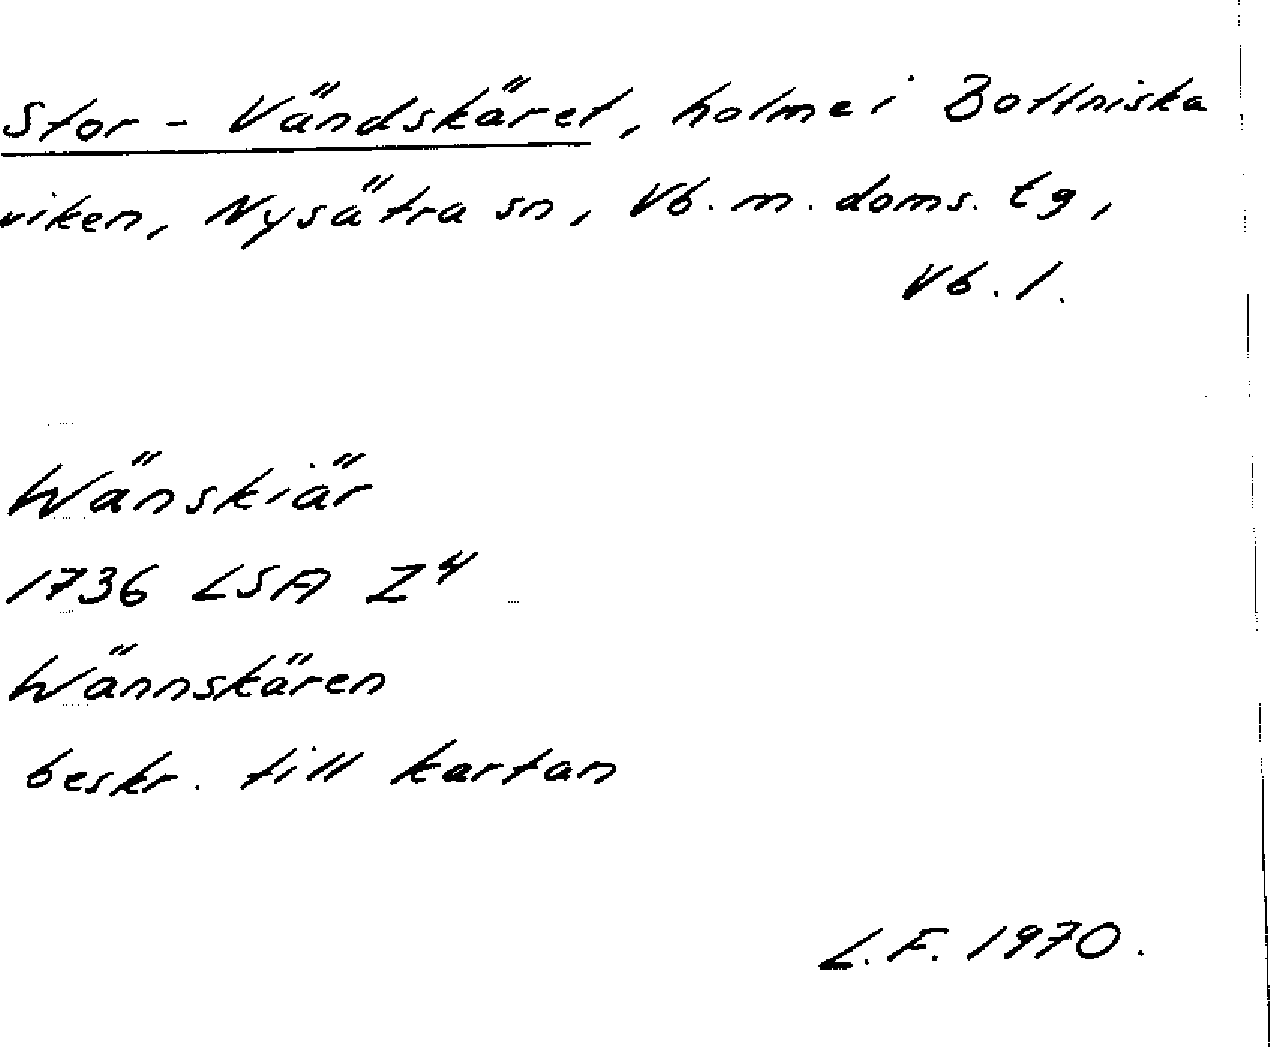 Stor-Vändskäret, holme i Bottniska
viken, Nysätra sn, Vb. m. doms. tg,
Vb. l.
Wänskiär
1736 LSA Z⁴
Wännskären
beskr. till kartan
L.F. 1970.